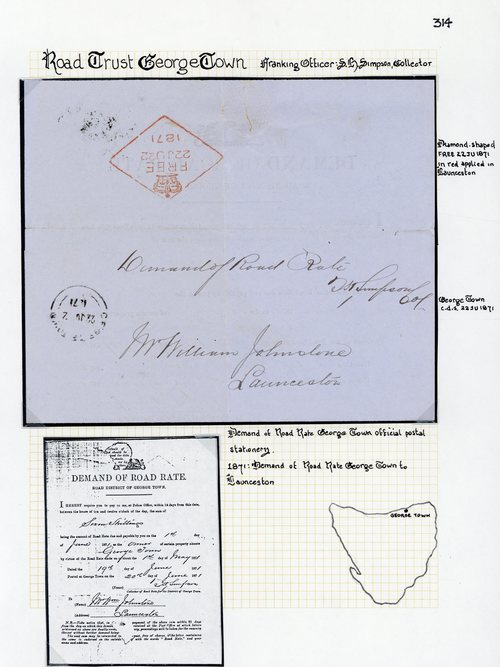 314
Road Trust George Town Franking Officer: S.H. Simpson, Collector
FREE
22 JU 22
1871
Diamond-shaped
FREE 22 JU 1871
in red applied in
Launceston
Demand of Road Rate
Simpson
Col
George Town
c.d.s. 22 JU 1871
Mr William Johnstone
Launceston
Demand of Road Rate George Town official postal
stationery.
1871: Demand of Road Rate George Town to
Launceston
GEORGE TOWN
DEMAND OF ROAD RATE.
ROAD DISTRICT OF GEORGE TOWN.
I HEREBY require you to pay to me, at Police Office, within 14 days from this date,
between the hours of ten and twelve o'clock of the day, the sum of
Seven Shillings
being the amount of Road Rate due and payable by you on the 1st day
of June 1871 as the owner of certain property situate
George Town
by virtue of the Road Rate made on the 1st day of May
Dated the 19th day of June 1871
Posted at George Town on the 20th day of June 1871
(Signed)
Collector of Road Rate for the District of George Town.
To
(Name) Mr Wm Johnstone
(Address) Launceston